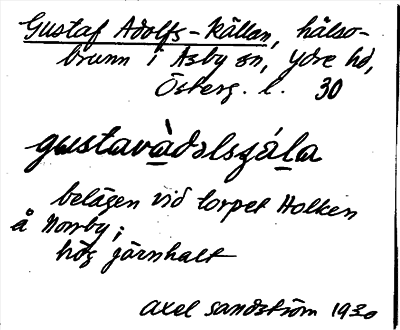 Gustaf Adolfs-källan, hälso-
brunn i Asby sn, Ydre hd,
Österg. l. 30
gustavàdəlsɟála
belägen vid torpet Holken
å Norrby;
hög järnhalt
Axel Sandström 1930